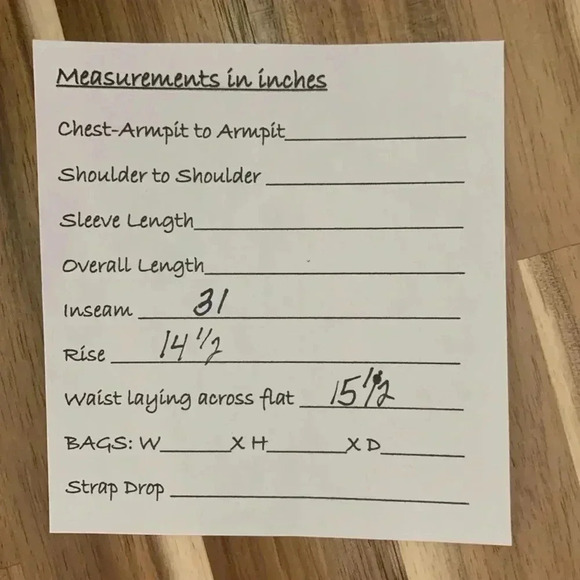 Measurements in inches
Chest-Armpit to Armpit
Shoulder to Shoulder
Sleeve Length
Overall Length
Inseam 31
Rise 14 1/2
Waist laying across flat 15 1/2
BAGS: W X H X D
Strap Drop